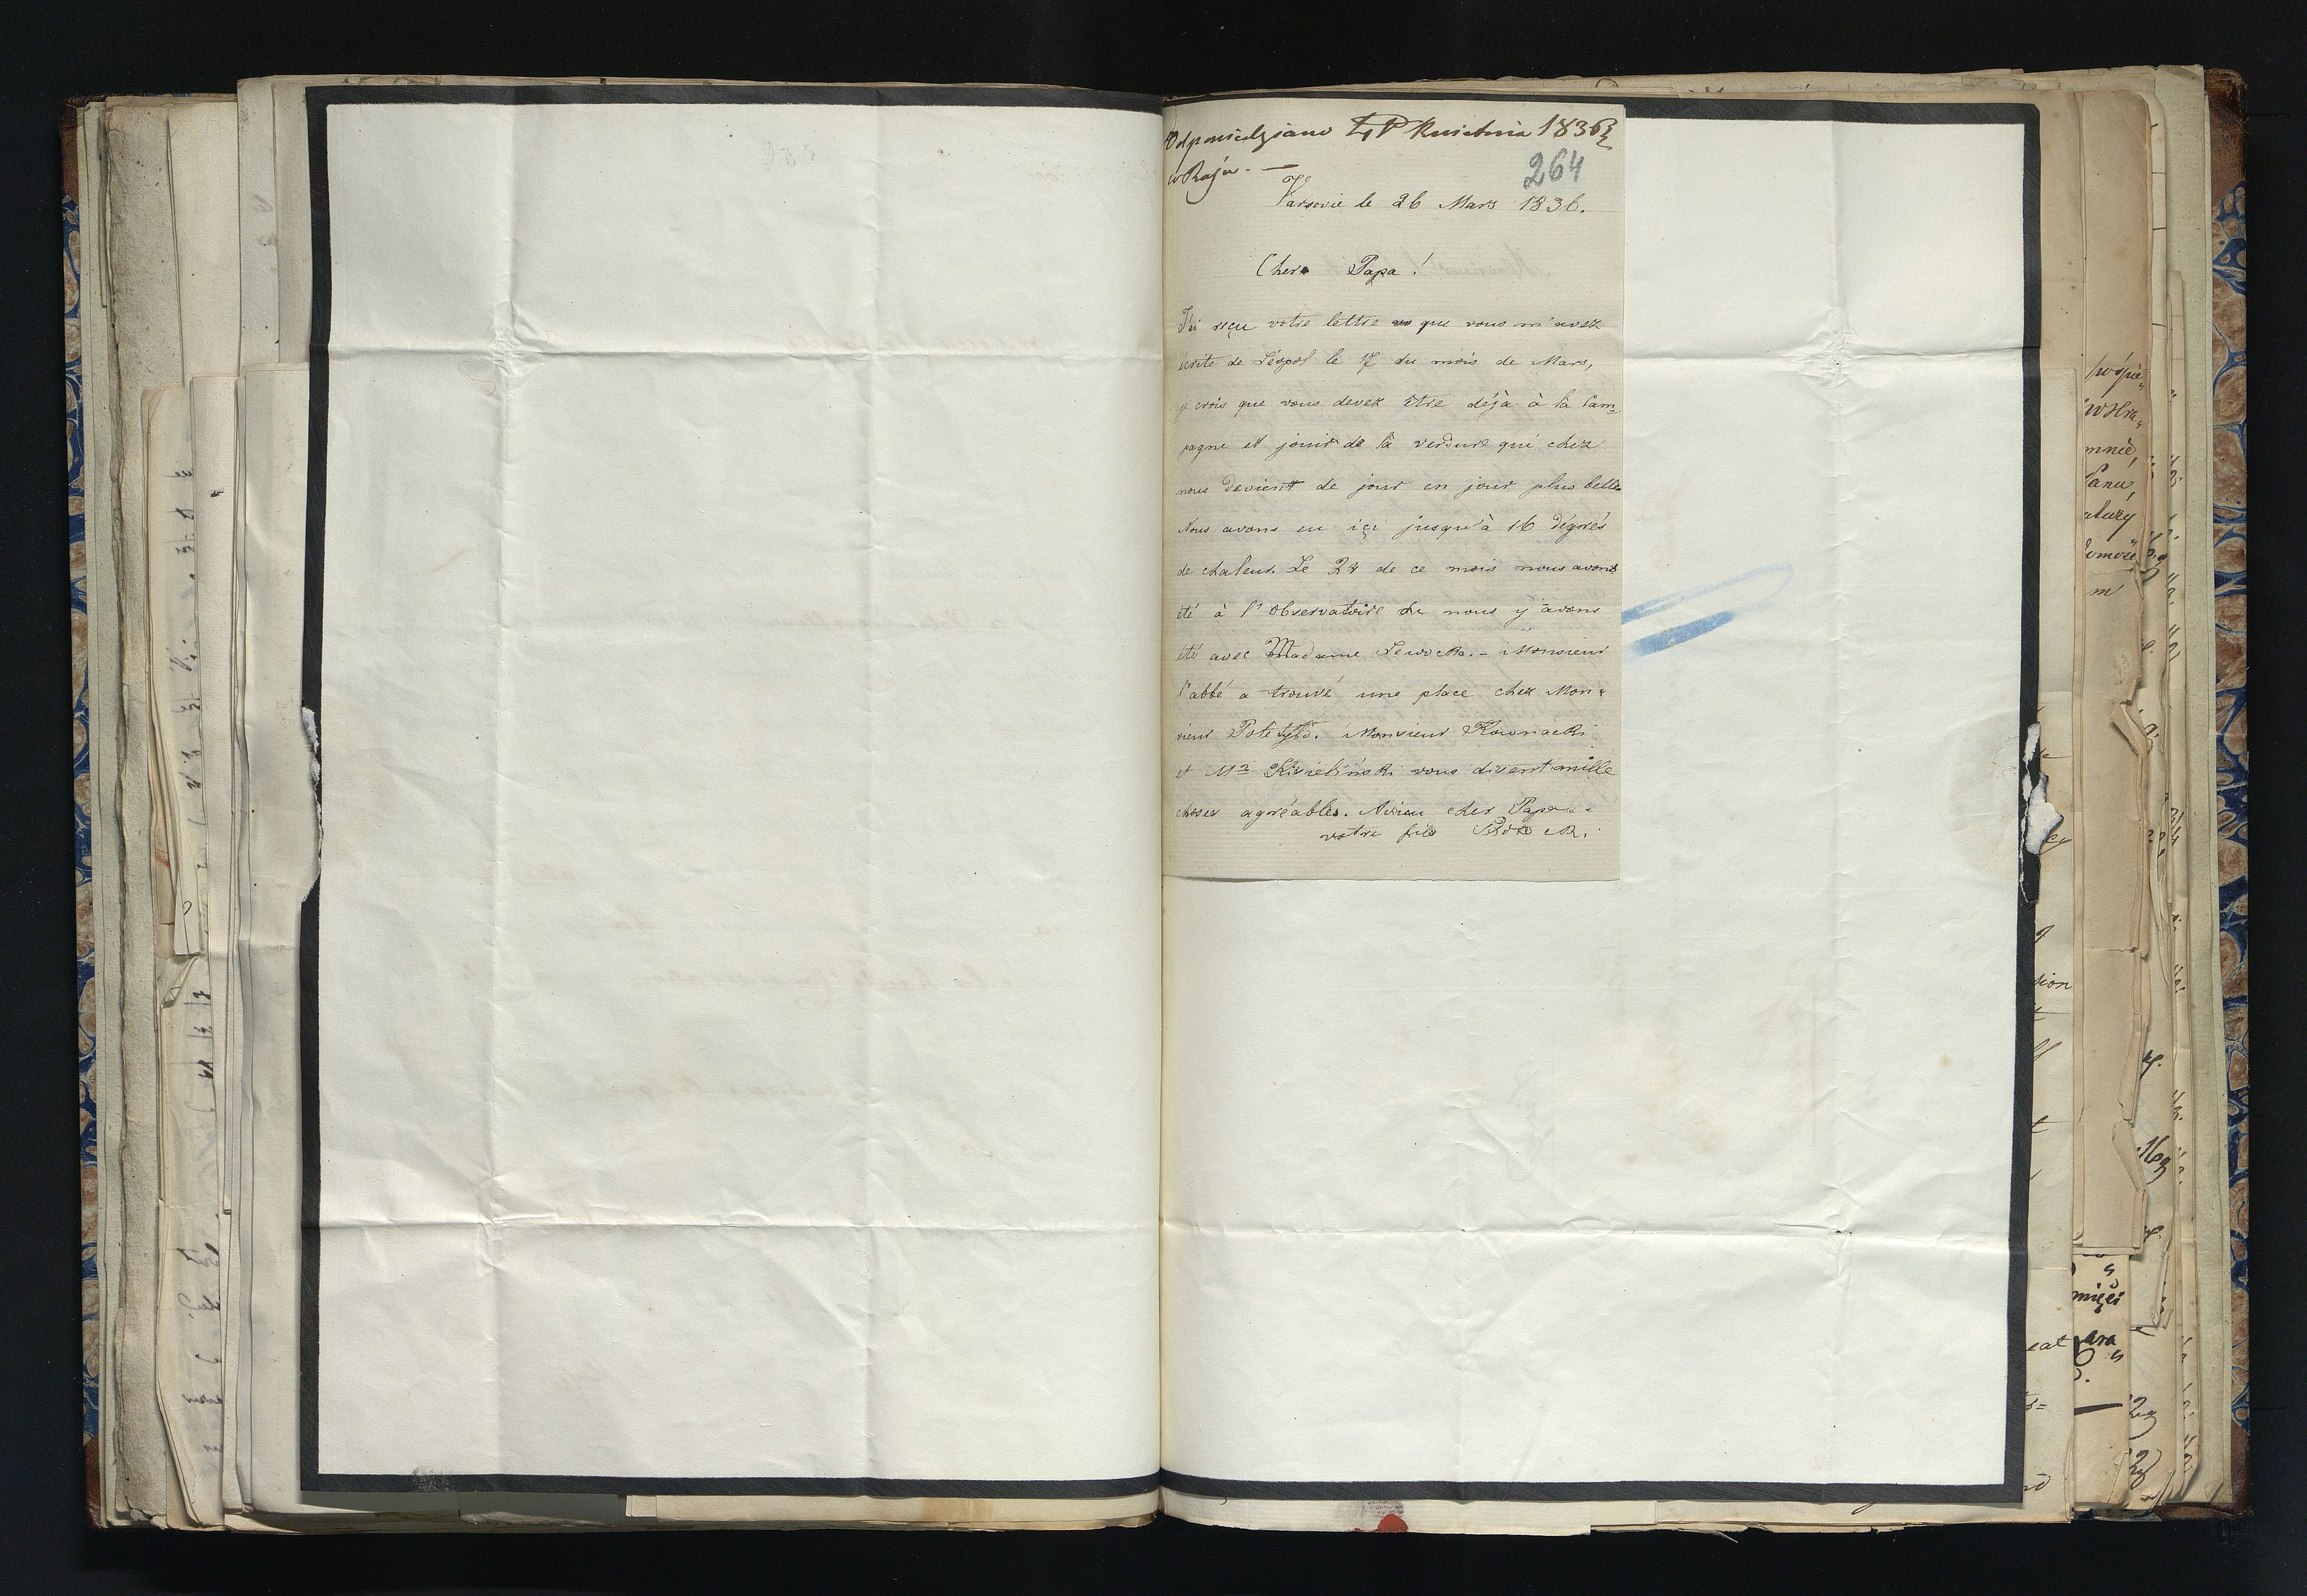 Odpowiedziano 4 Kwietnia 1836
w Raju. —
264
Varsovie le 26 Mars 1836.
Cher Papa !
J'ai reçu votre lettre que vous m'avez
écrite de Léopol le 17 du mois de Mars,
je crois que vous devez être déjà à la Cam=
pagne et jouir de la verdure qui chez
nous devient de jour en jour plus belle
Nous avons eu içi jusqu'à 16 dégrés
de chaleur. Le 24 de ce mois nous avons
été à l'Observatoire nous y avons
été avec Madame Lewocka. – Monsieur
l'abbé a trouvé une place chez Mon=
sieur Monsieur Kownacki
et Mr Kisieliński vous disent mille
choses agréables. Adieu cher Papa
votre fils